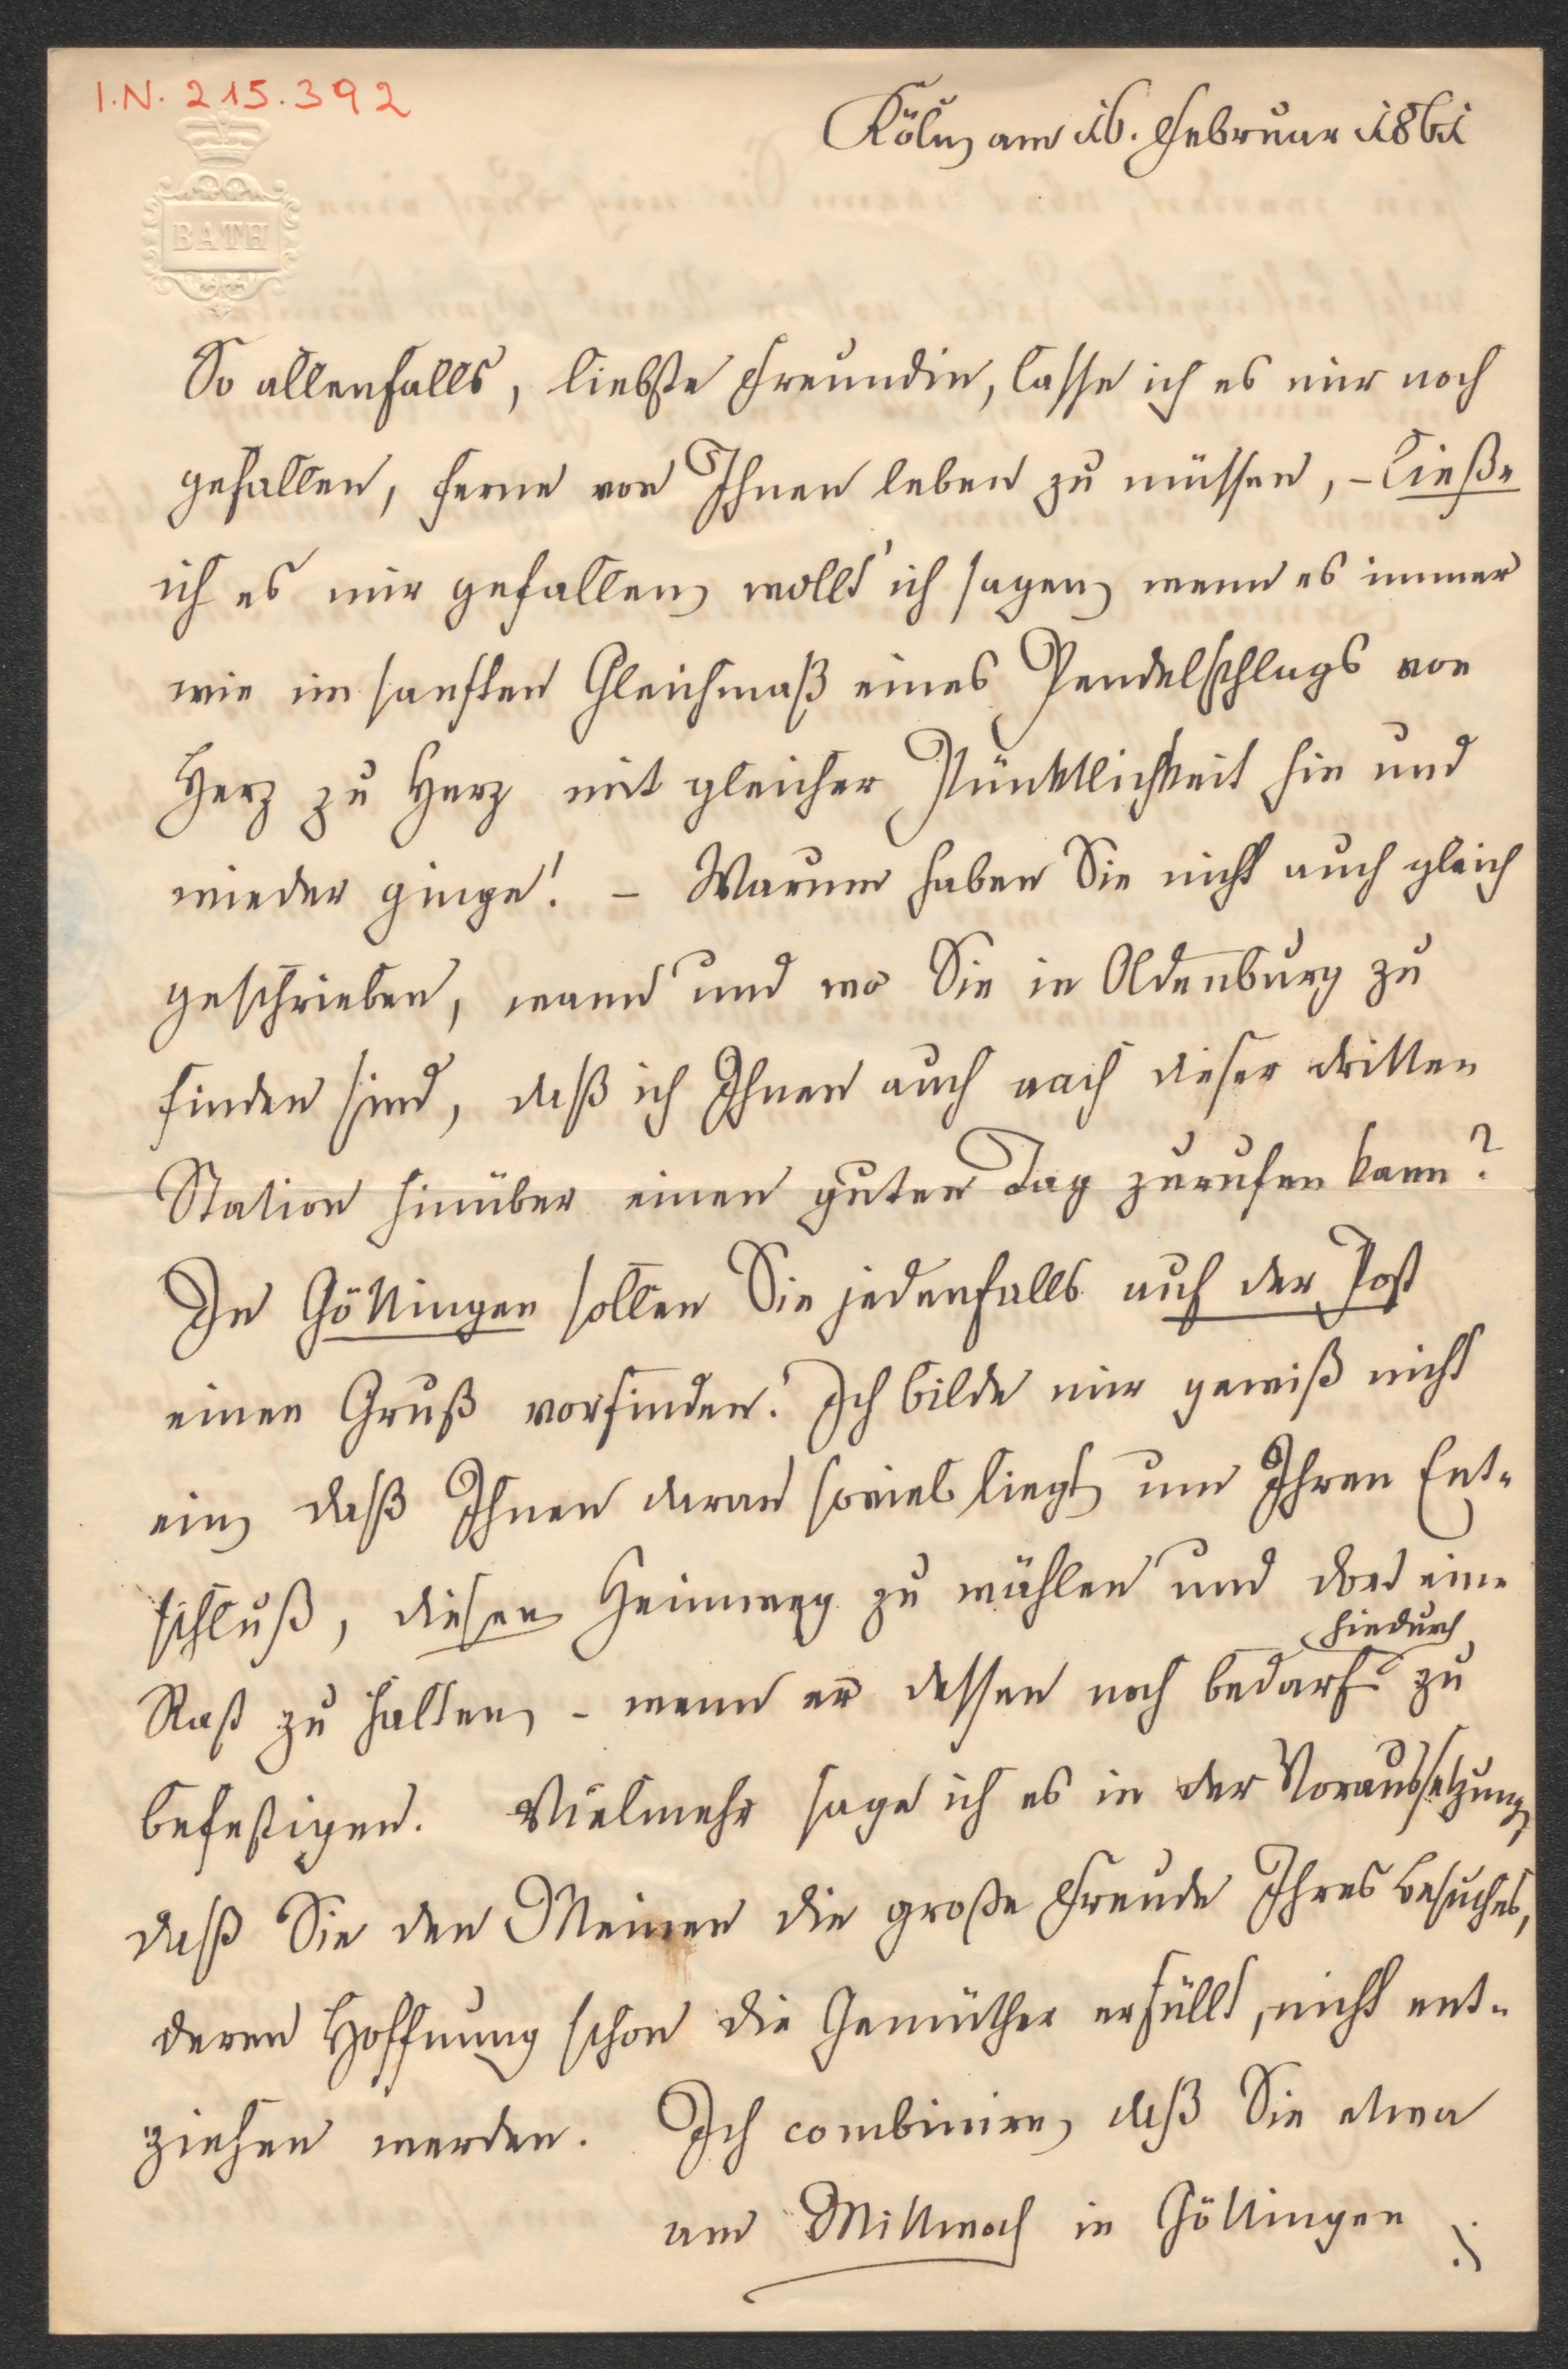 I.N. 215.392
BATH
Köln, am 16. Februar 1861
So allenfalls, liebste Freundin, lasse ich es mir noch
gefallen, ferne von Ihnen leben zu müssen, – ließe
ich es mir gefallen, wollt' ich sagen, wenn es immer
wie im sanften Gleichmaß eines Pendelschlags von
Herz zu Herz mit gleicher Pünktlichkeit hin und
wieder ginge! – Warum haben Sie nicht auch gleich
geschrieben, wann und wo Sie in Oldenburg zu
finden sind, daß ich Ihnen auch nach dieser dritten
Station hinüber einen guten Tag zurufen kann?
In Göttingen sollen Sie jedenfalls auf der Post
einen Gruß vorfinden. Ich bilde mir gewiß nicht
ein, daß Ihnen daran soviel liegt, um Ihren Ent-
schluß, diesen Heimweg zu wählen und dort eine
hiedurch
Rast zu halten, – wenn er dessen noch bedarf – zu
befestigen. Vielmehr sage ich es in der Voraussetzung,
daß Sie den Meinen die große Freude Ihres Besuches,
deren Hoffnung schon die Gemüther erfüllt, nicht ent-
ziehen werden. Ich combinire, daß Sie etwa
am Mittwoch in Göttingen